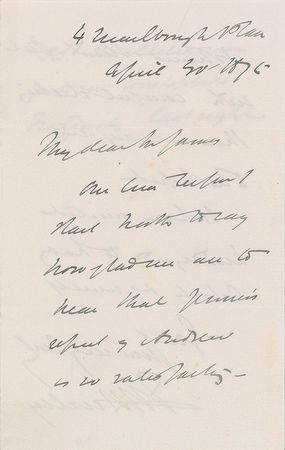 4 Marlborough Place
April 30 1876
My dear Mr James
One line before I
start North to say
how glad we are to
hear that Jenner's
report of Andrew
is so satisfactory —